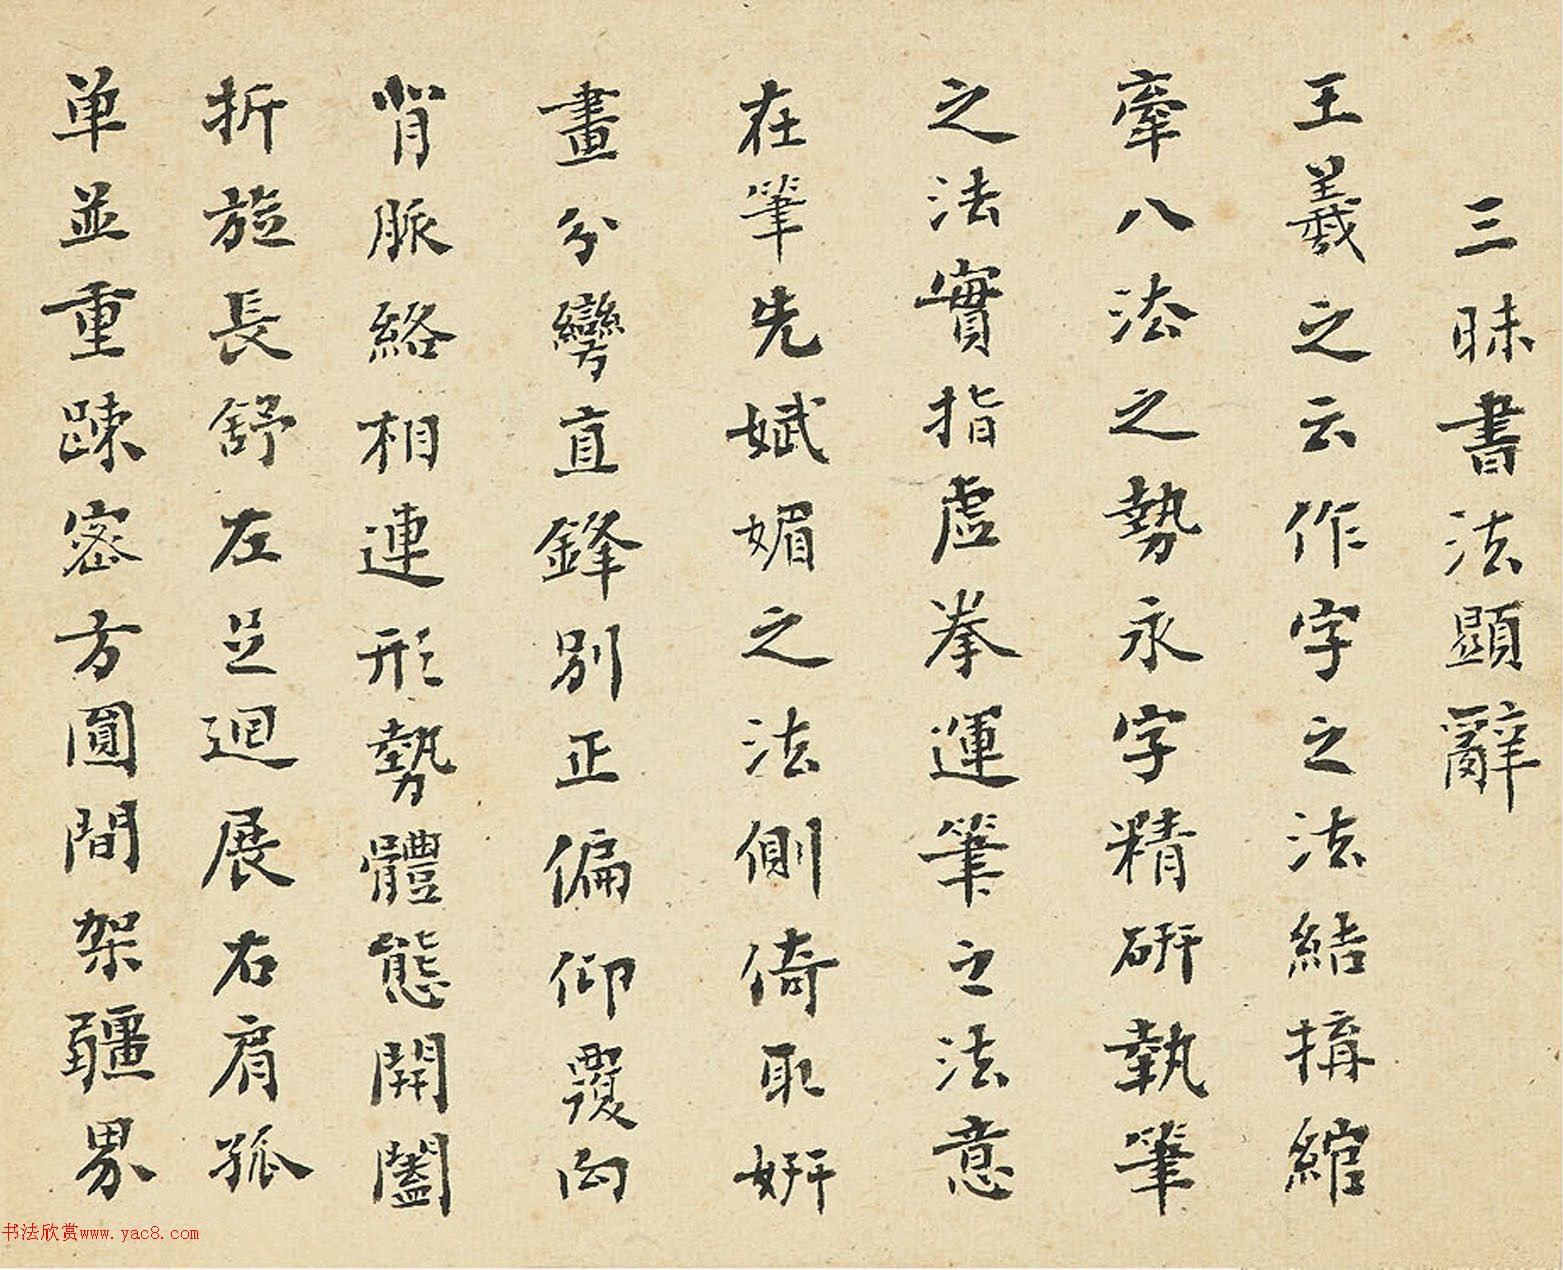 三昧書法顯辭
王羲之云作字之法結搆綰
牽八法之勢永字精研執筆
之法實指虛拳運筆之法意
在筆先娬媚之法側倚取妍
畫分彎直鋒別正偏仰覆向
背脈絡相連形勢體態開闔
折旋長舒左足迴展右肩孤
单並重踈密方圓間架疆界
书法欣赏www.yac8.com